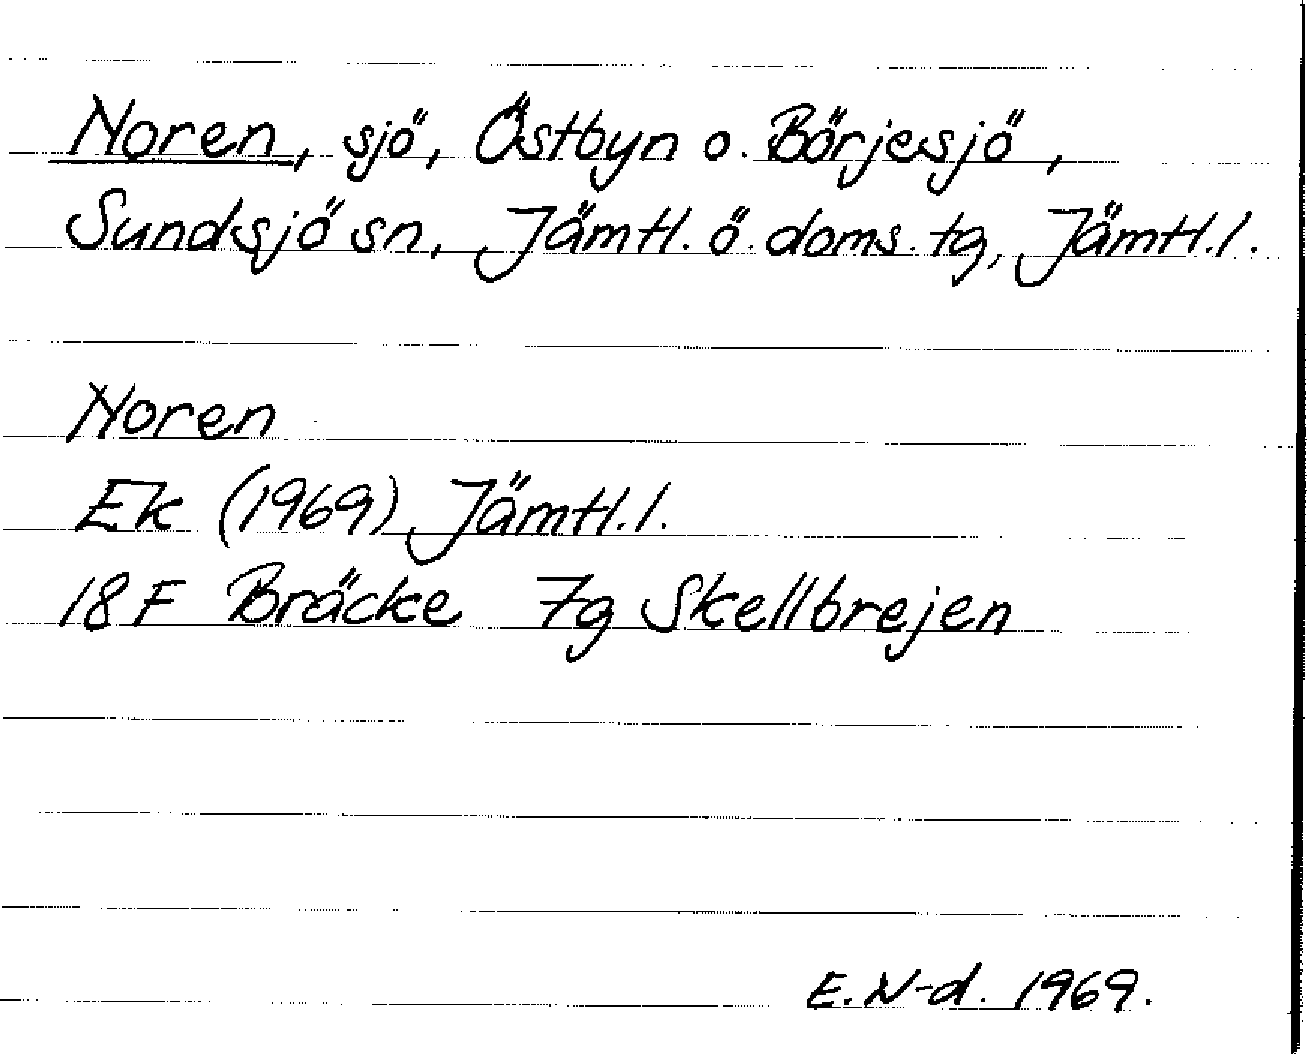 Noren, sjö, Östbyn o. Börjesjö,
Sundsjö sn, Jämtl. ö. doms. tg, Jämtl. l.
Noren
Ek (1969) Jämtl. l.
18 F Bräcke 7g Skellbrejen
E. N-d. 1969.